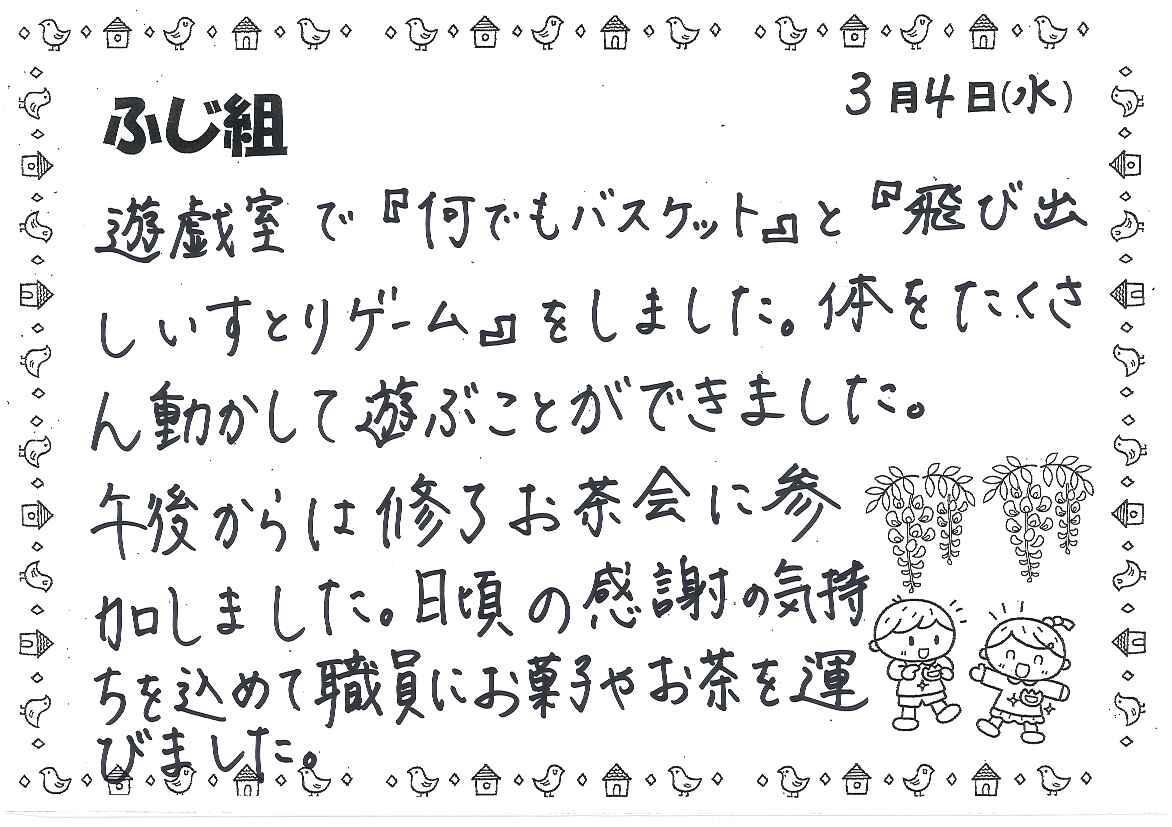 3月4日(水)
ふじ組
遊戯室で『何でもバスケット』と『飛び出
しいすとりゲーム』をしました。体をたくさ
ん動かして遊ぶことができました。
午後からは修了お茶会に参
加しました。日頃の感謝の気持
ちを込めて職員にお菓子やお茶を運
びました。